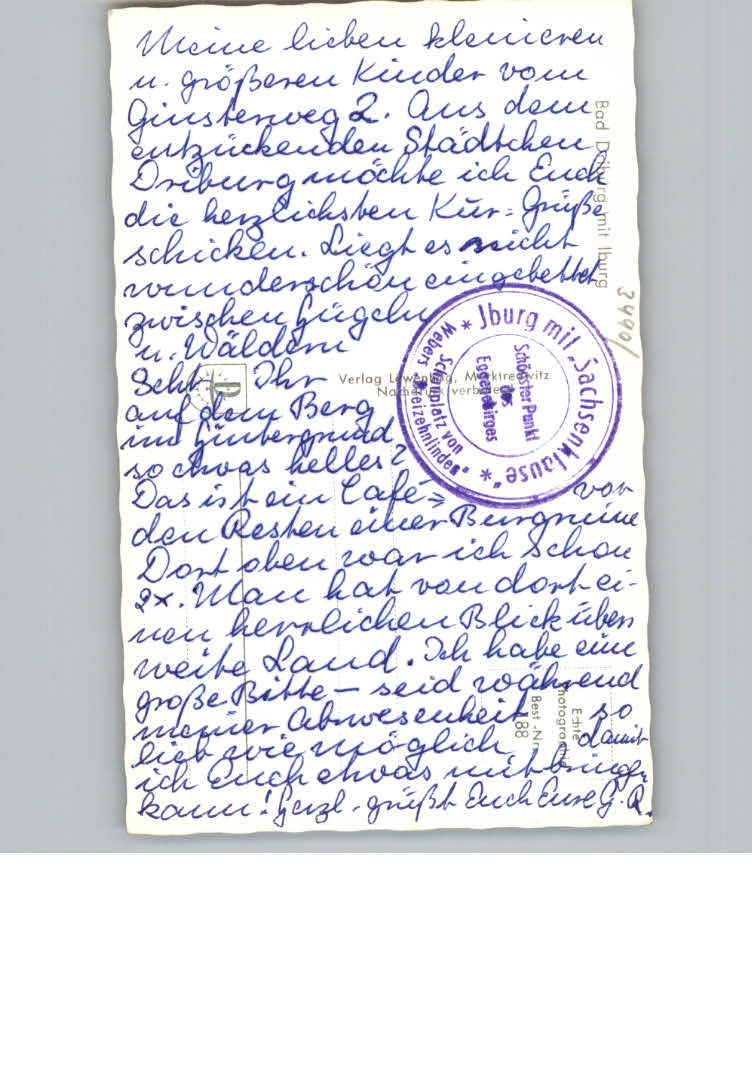 Meine lieben kleineren
u. größeren Kinder vom
Ginsterweg 2. Aus dem
entzückenden Städtchen
Driburg möchte ich Euch
die herzlichsten Kur-Grüße
schicken. Liegt es nicht
wunderschön eingebettet
zwischen Hügeln
u. Wäldern
Seht Ihr
auf dem Berg
im Hintergrund
so etwas helles?
Das ist ein Café vor
den Resten einer Burgruine
Dort oben war ich schon
2x. Man hat von dort ei-
nen herrlichen Blick übers
weite Land. Ich habe eine
große Bitte – seid während
meiner Abwesenheit so
lieb wie möglich, damit
ich Euch etwas mitbringen
kann! Herzl. grüßt Euch Eure G. Q.
Bad Driburg mit Iburg
3490/
Verlag Löwenhag, Marktredwitz
Nachdruck verboten
* Jburg mit „Sachsenklause" *
Webers Schauplatz von
„Dreizehnlinden"
Schönster Punkt
des
Eggegebirges
Echte
Photographie
Best.-Nr.
188